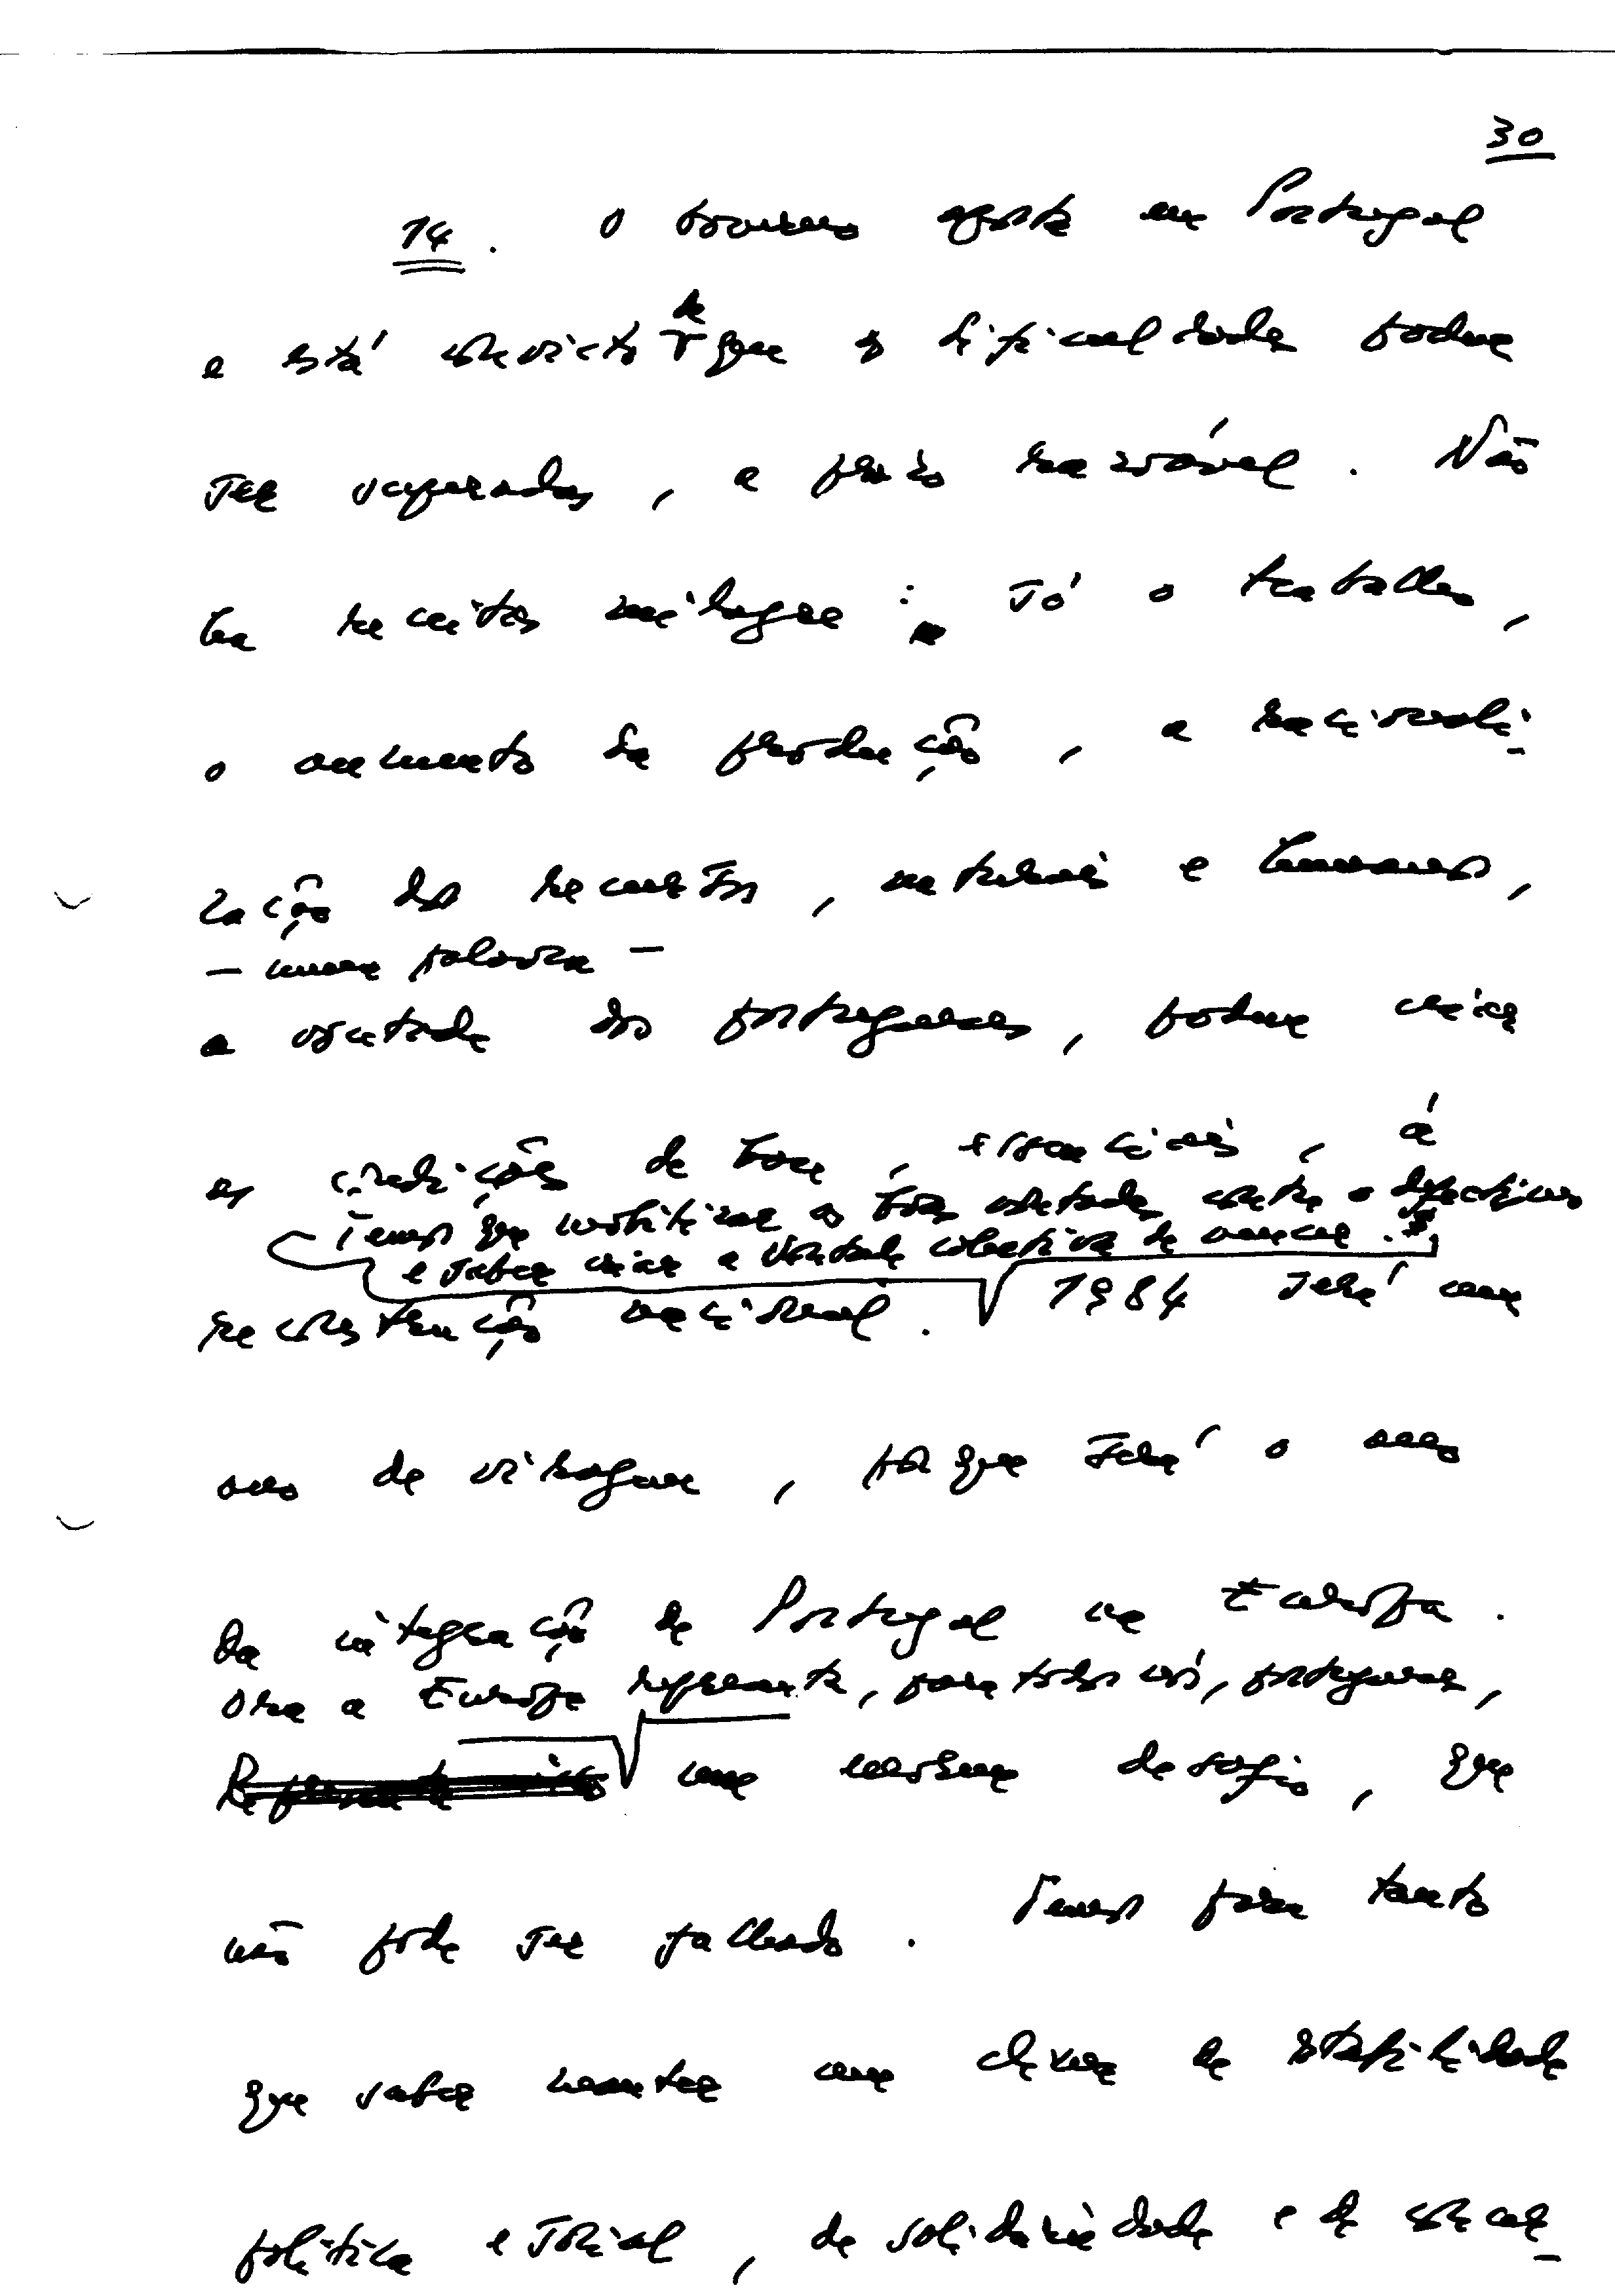 30
14. O Governo aposta em Portugal
e está convicto de que as dificuldades podem
ser superadas, a prazo razoável. Não
há receitas milagre: só o trabalho,
o aumento da produção, a racionali-
zação dos recursos, naturais e humanos,
— numa palavra —
a vontade dos portugueses, podem criar
as condições de base, essenciais, à
Temos que mobilizar as boas vontades contra o
e saber criar a vontade colectiva de vencer.
reconstrução nacional. 1984 será um
ano de viragem, porque será o ano
da integração de Portugal na Europa.
Ora a Europa representa, para todos nós, portugueses,
um enorme desafio, que
não pode ser falhado. Temos para tanto
que saber manter um clima de estabilidade
política e social, de solidariedade e de concer-